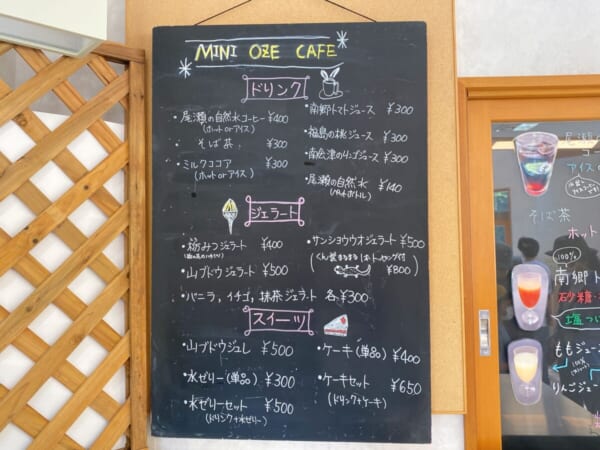 MINI OZE CAFE
ドリンク
・尾瀬の自然水コーヒー ¥400
(ホットorアイス)
・そば茶 ¥300
・ミルクココア ¥300
(ホットorアイス)
・南郷トマトジュース ¥300
・福島の桃ジュース ¥300
・南会津のリンゴジュース ¥300
・尾瀬の自然水 ¥140
(ペットボトル)
ジェラート
・栃みつジェラート ¥400
・山ブドウジェラート ¥500
・サンショウウオジェラート ¥500
¥800
・バニラ,イチゴ,抹茶ジェラート 各¥300
スイーツ
・山ブドウジュレ ¥500
・水ゼリー(単品) ¥300
・水ゼリーセット ¥500
(ドリンク+水ゼリー)
・ケーキ(単品) ¥400
・ケーキセット ¥650
(ドリンク+ケーキ)
アイス
そば茶
ホット
100%
南郷ト
砂糖
塩
ももジュー
100%
りんごジュー